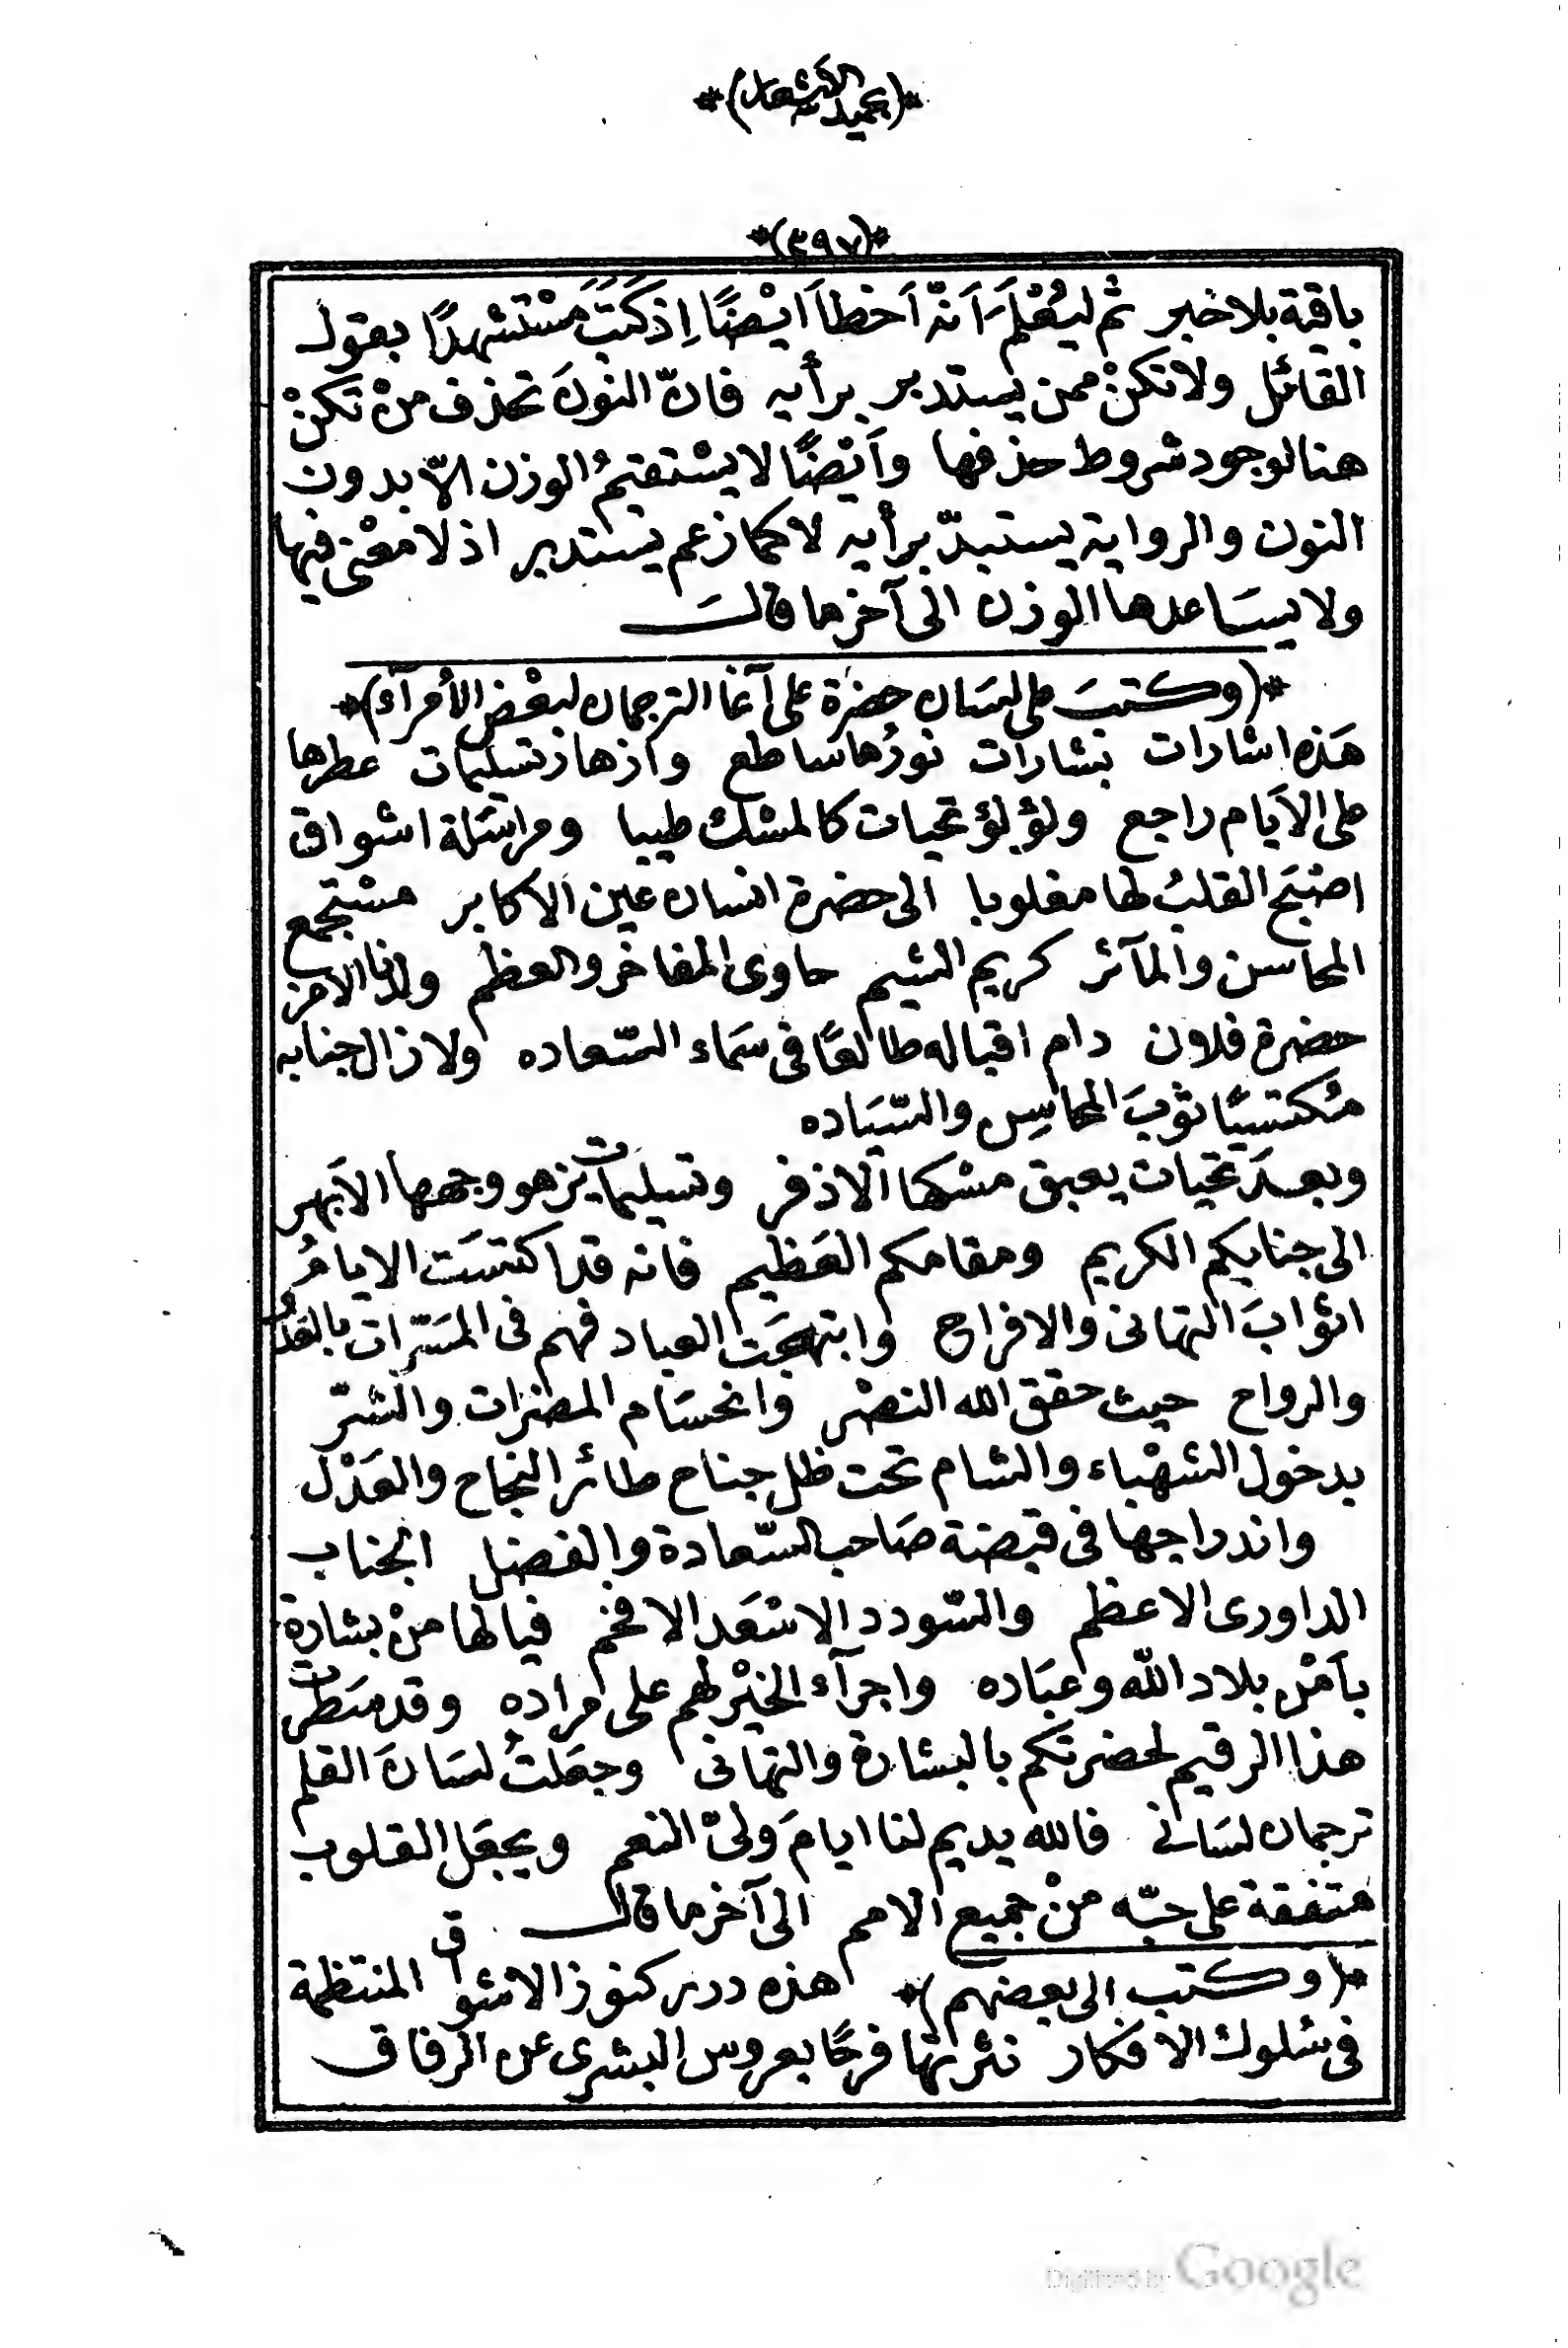 *(٣٩٧)*
باقية بلا خبر ثم ليُعْلَم اَنّه اَخطأ اَيْضًا اِذ كَتَبَ مُسْتَشْهِدًا بقول
القائل ولا تكنْ ممن يستدبر برأيه فانّ النونَ تحذف منْ تكنْ
هنا لوجود شروط حذفها وأَيْضًا لا يسْتقيمُ الوزن الاّ بدون
النون والرواية يستبدّ برأيه لا كما زعم يستدبر اذ لا معْنى فيها
ولا يسَاعدها الوزن الى آخر ما قالَ
*(وكتبَ على لسَان حضرة على آغا الترجمان لبعْض الأمرآء)*
هَذه اشارات بشارات نورُها ساطع وأزهار تسليمات عطرها
على الاَيام راجع ولؤلؤ تحيات كالمسْك طيبا ومراسَلة اشواق
اصْبَح القلبُ لها مغلوبا الى حضرة انسان عين الاكابر مسْتجمع
المحاسن والمآثر كريم الشيم حاوى المفاخر والعظم ولدنا الامز
حضرة فلان دام اقباله طالعًا فى سَماء السّعاده ولا زال جنابه
مُكتسيًا ثوبَ المحاسِن والسّيَاده
وبعدَ تحيات يعبق مسْكها الاذفر وتسليمات يزهو وجهها الاَبهر
الى جنابكم الكريم ومقامكم العَظيم فانه قد اكتسَت الايامُ
اثوابَ التهانى والافراح وابتهجَت العباد فهم فى المسَرّات بالغدُ
والرواح حيث حقق الله النصْر وانحسَام المضرات والشرّ
بدخول الشهْباء والشام تحت ظل جناح طائر النجاح والعَدْل
واندراجها فى قبضة صَاحب السّعادة والفضل الجناب
الداورى الاعظم والسّودد الاسْعَد الافخم فيا لها منْ بشارة
بأمْن بلاد الله وعبَاده واجرآء الخيْر لهم على مراده وقد سَطرْت
هذا الرقيم لحضرتكم بالبشارة والتهانى وجعَلتُ لسَانَ القلم
ترجمان لسَانى فالله يديم لنا ايامَ ولىّ النعم ويجعَل القلوب
متفقة على حبّه منْ جميع الامم الى آخر ما قال
*(وكتب الى بعضهم)* هذه درر كنوز الاشواق المنتظمة
فى سُلوك الافكار نثرتها فرحًا بعروس البشرى عن الرفاق
Digitized by Google